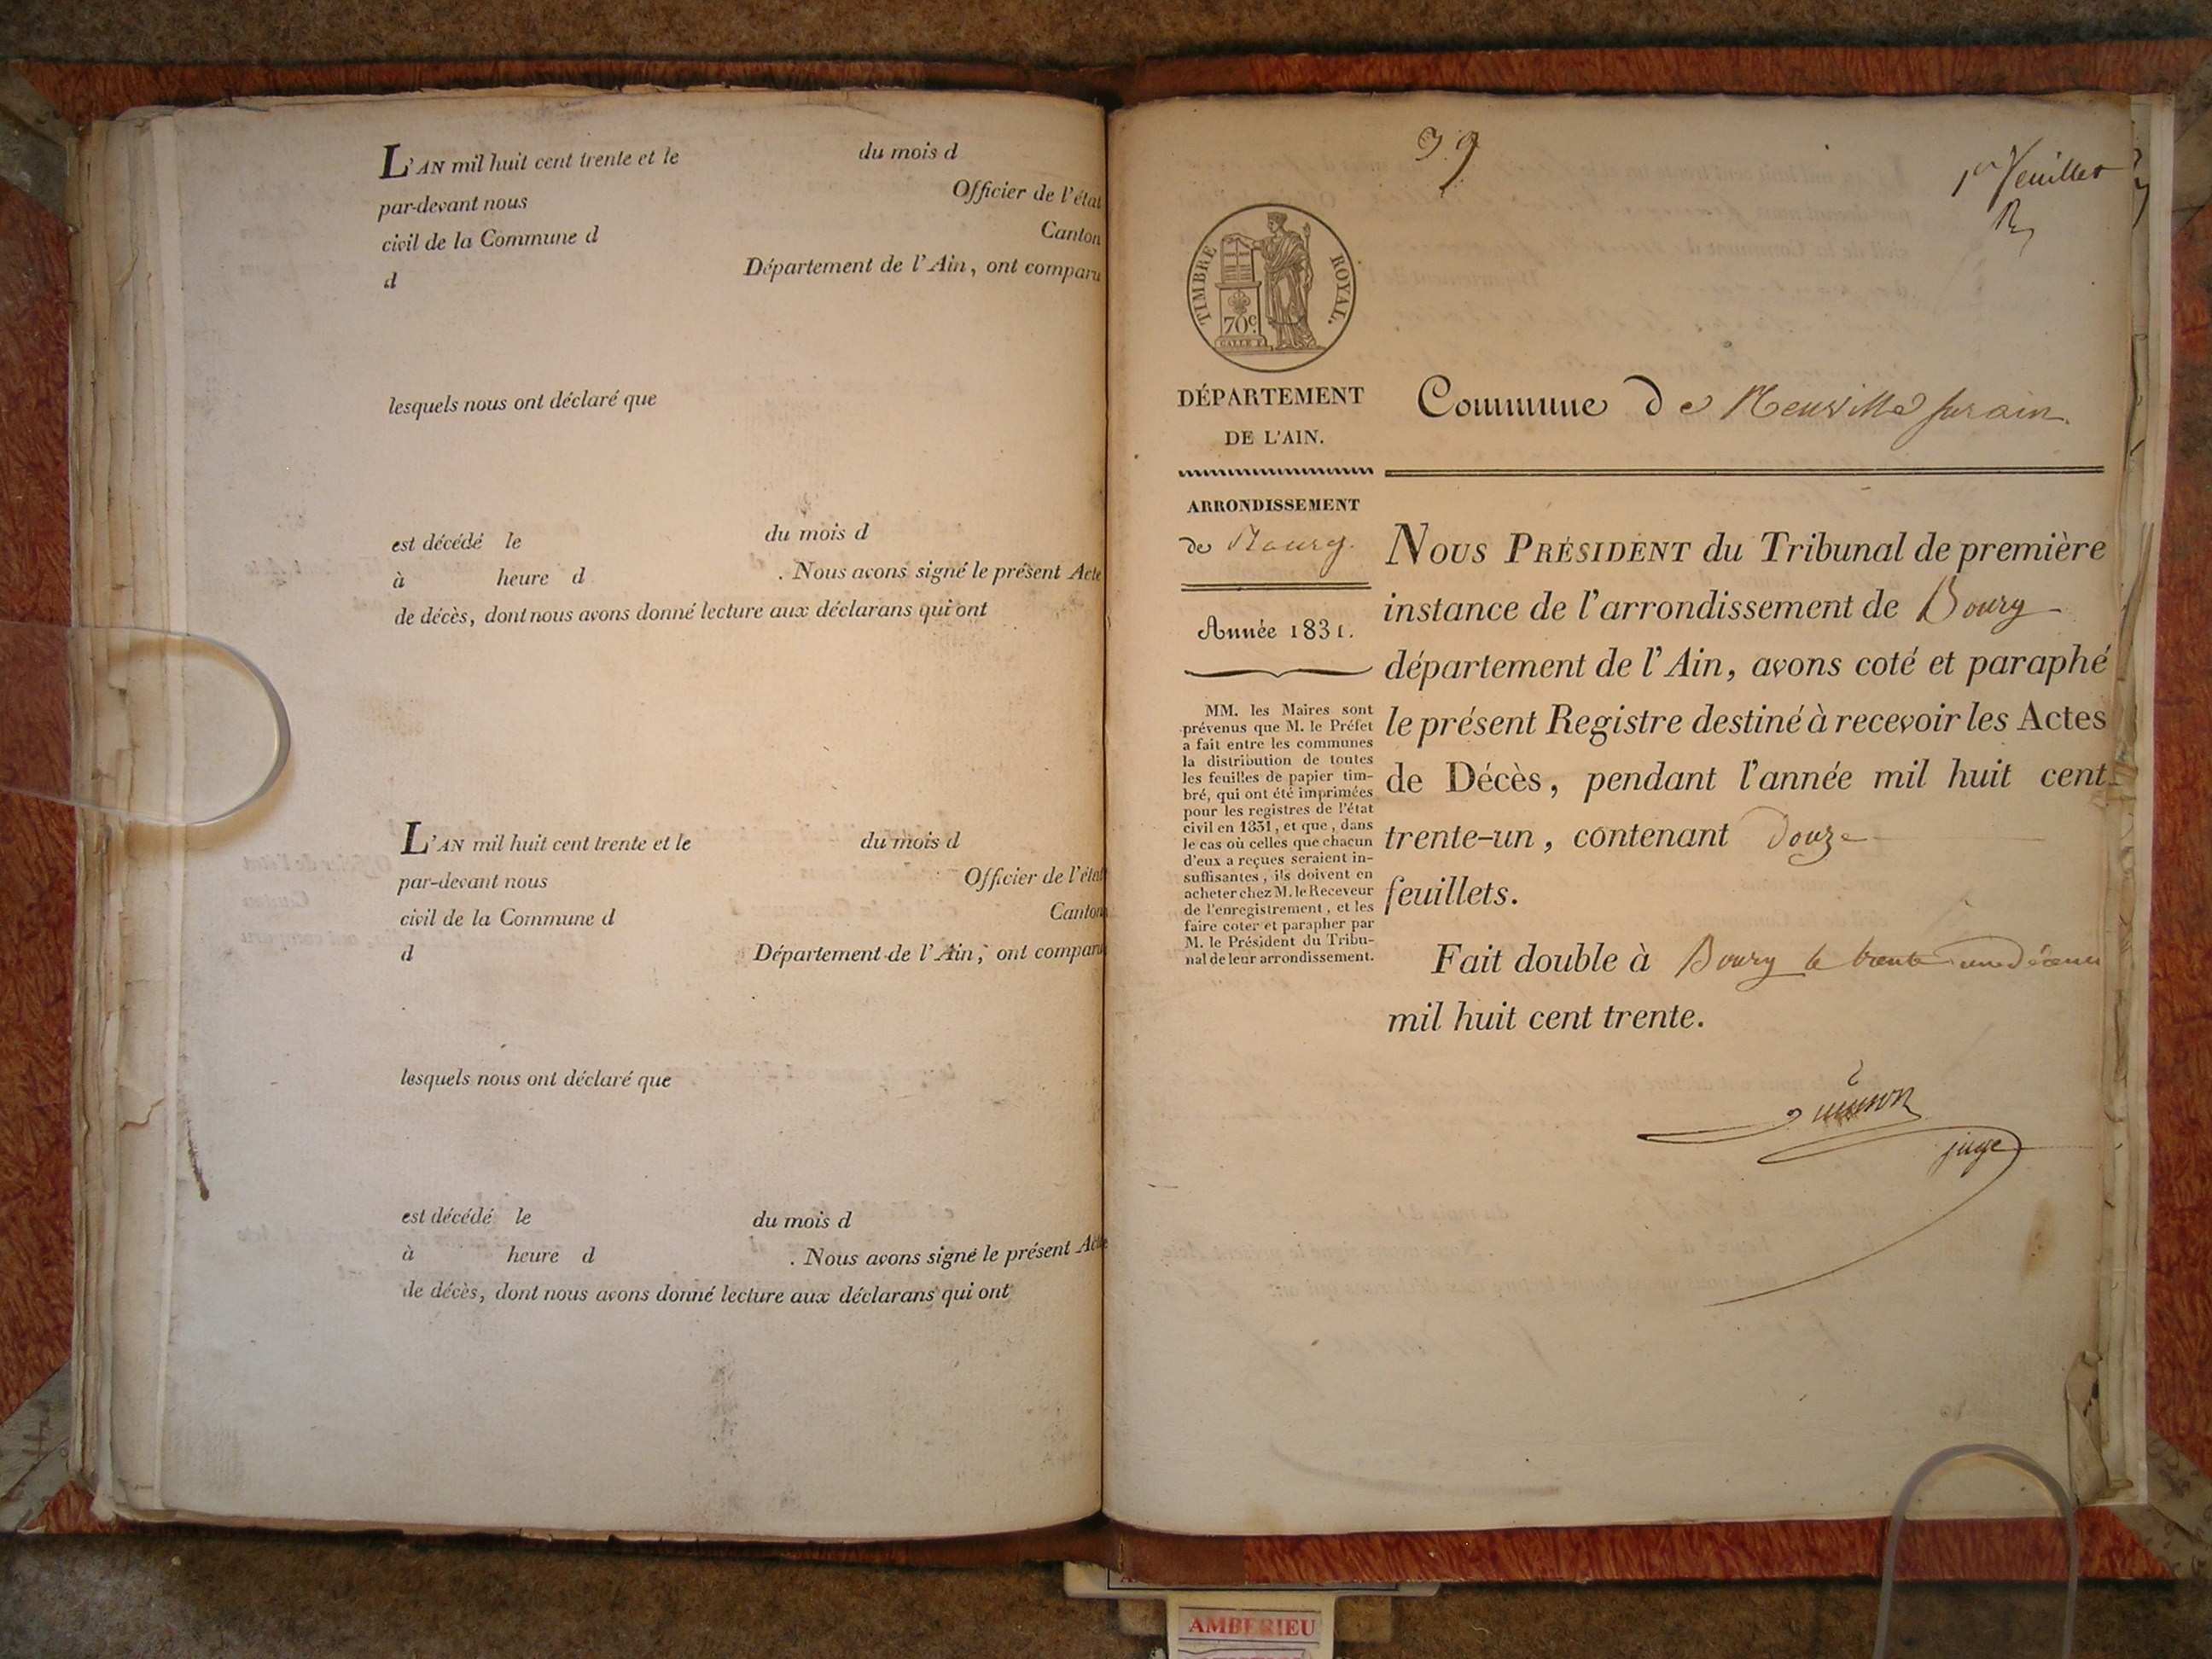 L'AN mil huit cent trente et le du mois d
par-devant nous Officier de l'état
civil de la Commune d Canton
d Département de l'Ain, ont comparu
lesquels nous ont déclaré que
est décédé le du mois d
à heure d . Nous avons signé le présent Acte
de décès, dont nous avons donné lecture aux déclarans qui ont
L'AN mil huit cent trente et le du mois d
par-devant nous Officier de l'état
civil de la Commune d Canton
d Département de l'Ain, ont comparu
lesquels nous ont déclaré que
est décédé le du mois d
à heure d . Nous avons signé le présent Acte
de décès, dont nous avons donné lecture aux déclarans qui ont
39
1er feuillet
TIMBRE ROYAL.
70c.
DÉPARTEMENT
DE L'AIN.
ARRONDISSEMENT
de Bourg.
Année 1831.
MM. les Maires sont
prévenus que M. le Préfet
a fait entre les communes
la distribution de toutes
les feuilles de papier tim-
bré, qui ont été imprimées
pour les registres de l'état
civil en 1831, et que, dans
le cas où celles que chacun
d'eux a reçues seraient in-
suffisantes, ils doivent en
acheter chez M. le Receveur
de l'enregistrement, et les
faire coter et parapher par
M. le Président du Tribu-
nal de leur arrondissement.
Commune de Neuville sur ain
NOUS PRÉSIDENT du Tribunal de première
instance de l'arrondissement de Bourg
département de l'Ain, avons coté et paraphé
le présent Registre destiné à recevoir les Actes
de Décès, pendant l'année mil huit cent
trente-un, contenant Douze
feuillets.
Fait double à Bourg le trente un
mil huit cent trente.
juge
AMBERIEU